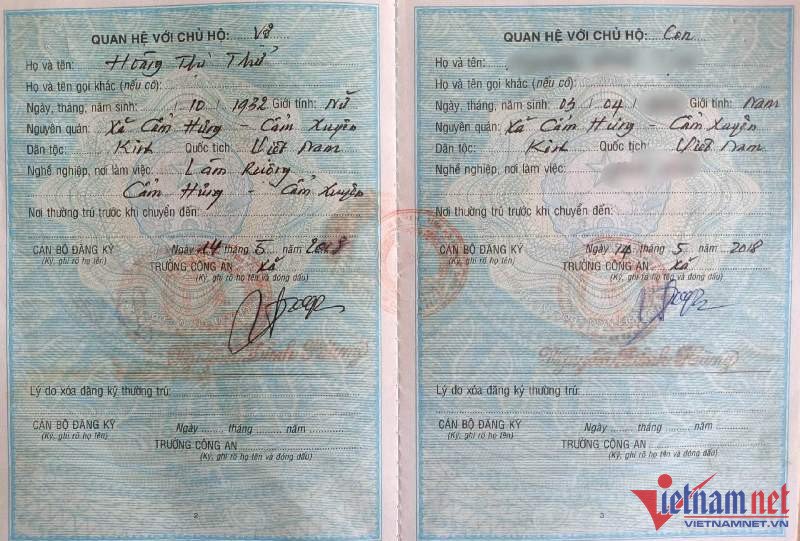 QUAN HỆ VỚI CHỦ HỘ: Vợ
Họ và tên: Hoàng Thị Thử
Họ và tên gọi khác (nếu có):
Ngày, tháng, năm sinh: / 10 / 1932 Giới tính: Nữ
Nguyên quán: Xã Cẩm Hưng - Cẩm Xuyên
Dân tộc: Kinh Quốc tịch: Việt Nam
Nghề nghiệp, nơi làm việc: Làm Ruộng
Cẩm Hưng - Cẩm Xuyên
Nơi thường trú trước khi chuyển đến:
CÁN BỘ ĐĂNG KÝ Ngày 14 tháng 5 năm 2018
(Ký, ghi rõ họ tên) TRƯỞNG CÔNG AN Xã
(Ký, ghi rõ họ tên và đóng dấu)
Lý do xóa đăng ký thường trú:
CÁN BỘ ĐĂNG KÝ Ngày ...... tháng ...... năm ......
(Ký, ghi rõ họ tên) TRƯỞNG CÔNG AN
(Ký, ghi rõ họ tên và đóng dấu)
2
QUAN HỆ VỚI CHỦ HỘ: Con
Họ và tên:
Họ và tên gọi khác (nếu có):
Ngày, tháng, năm sinh: 03 / 04 / Giới tính: Nam
Nguyên quán: Xã Cẩm Hưng - Cẩm Xuyên
Dân tộc: Kinh Quốc tịch: Việt Nam
Nghề nghiệp, nơi làm việc:
Nơi thường trú trước khi chuyển đến:
CÁN BỘ ĐĂNG KÝ Ngày 14 tháng 5 năm 2018
(Ký, ghi rõ họ tên) TRƯỞNG CÔNG AN Xã
(Ký, ghi rõ họ tên và đóng dấu)
Nguyễn Đình
Lý do xóa đăng ký thường trú:
CÁN BỘ ĐĂNG KÝ Ngày ...... tháng ...... năm ......
(Ký, ghi rõ họ tên) TRƯỞNG CÔNG AN
(Ký, ghi rõ họ tên và đóng dấu)
3
Vietnamnet
VIETNAMNET.VN